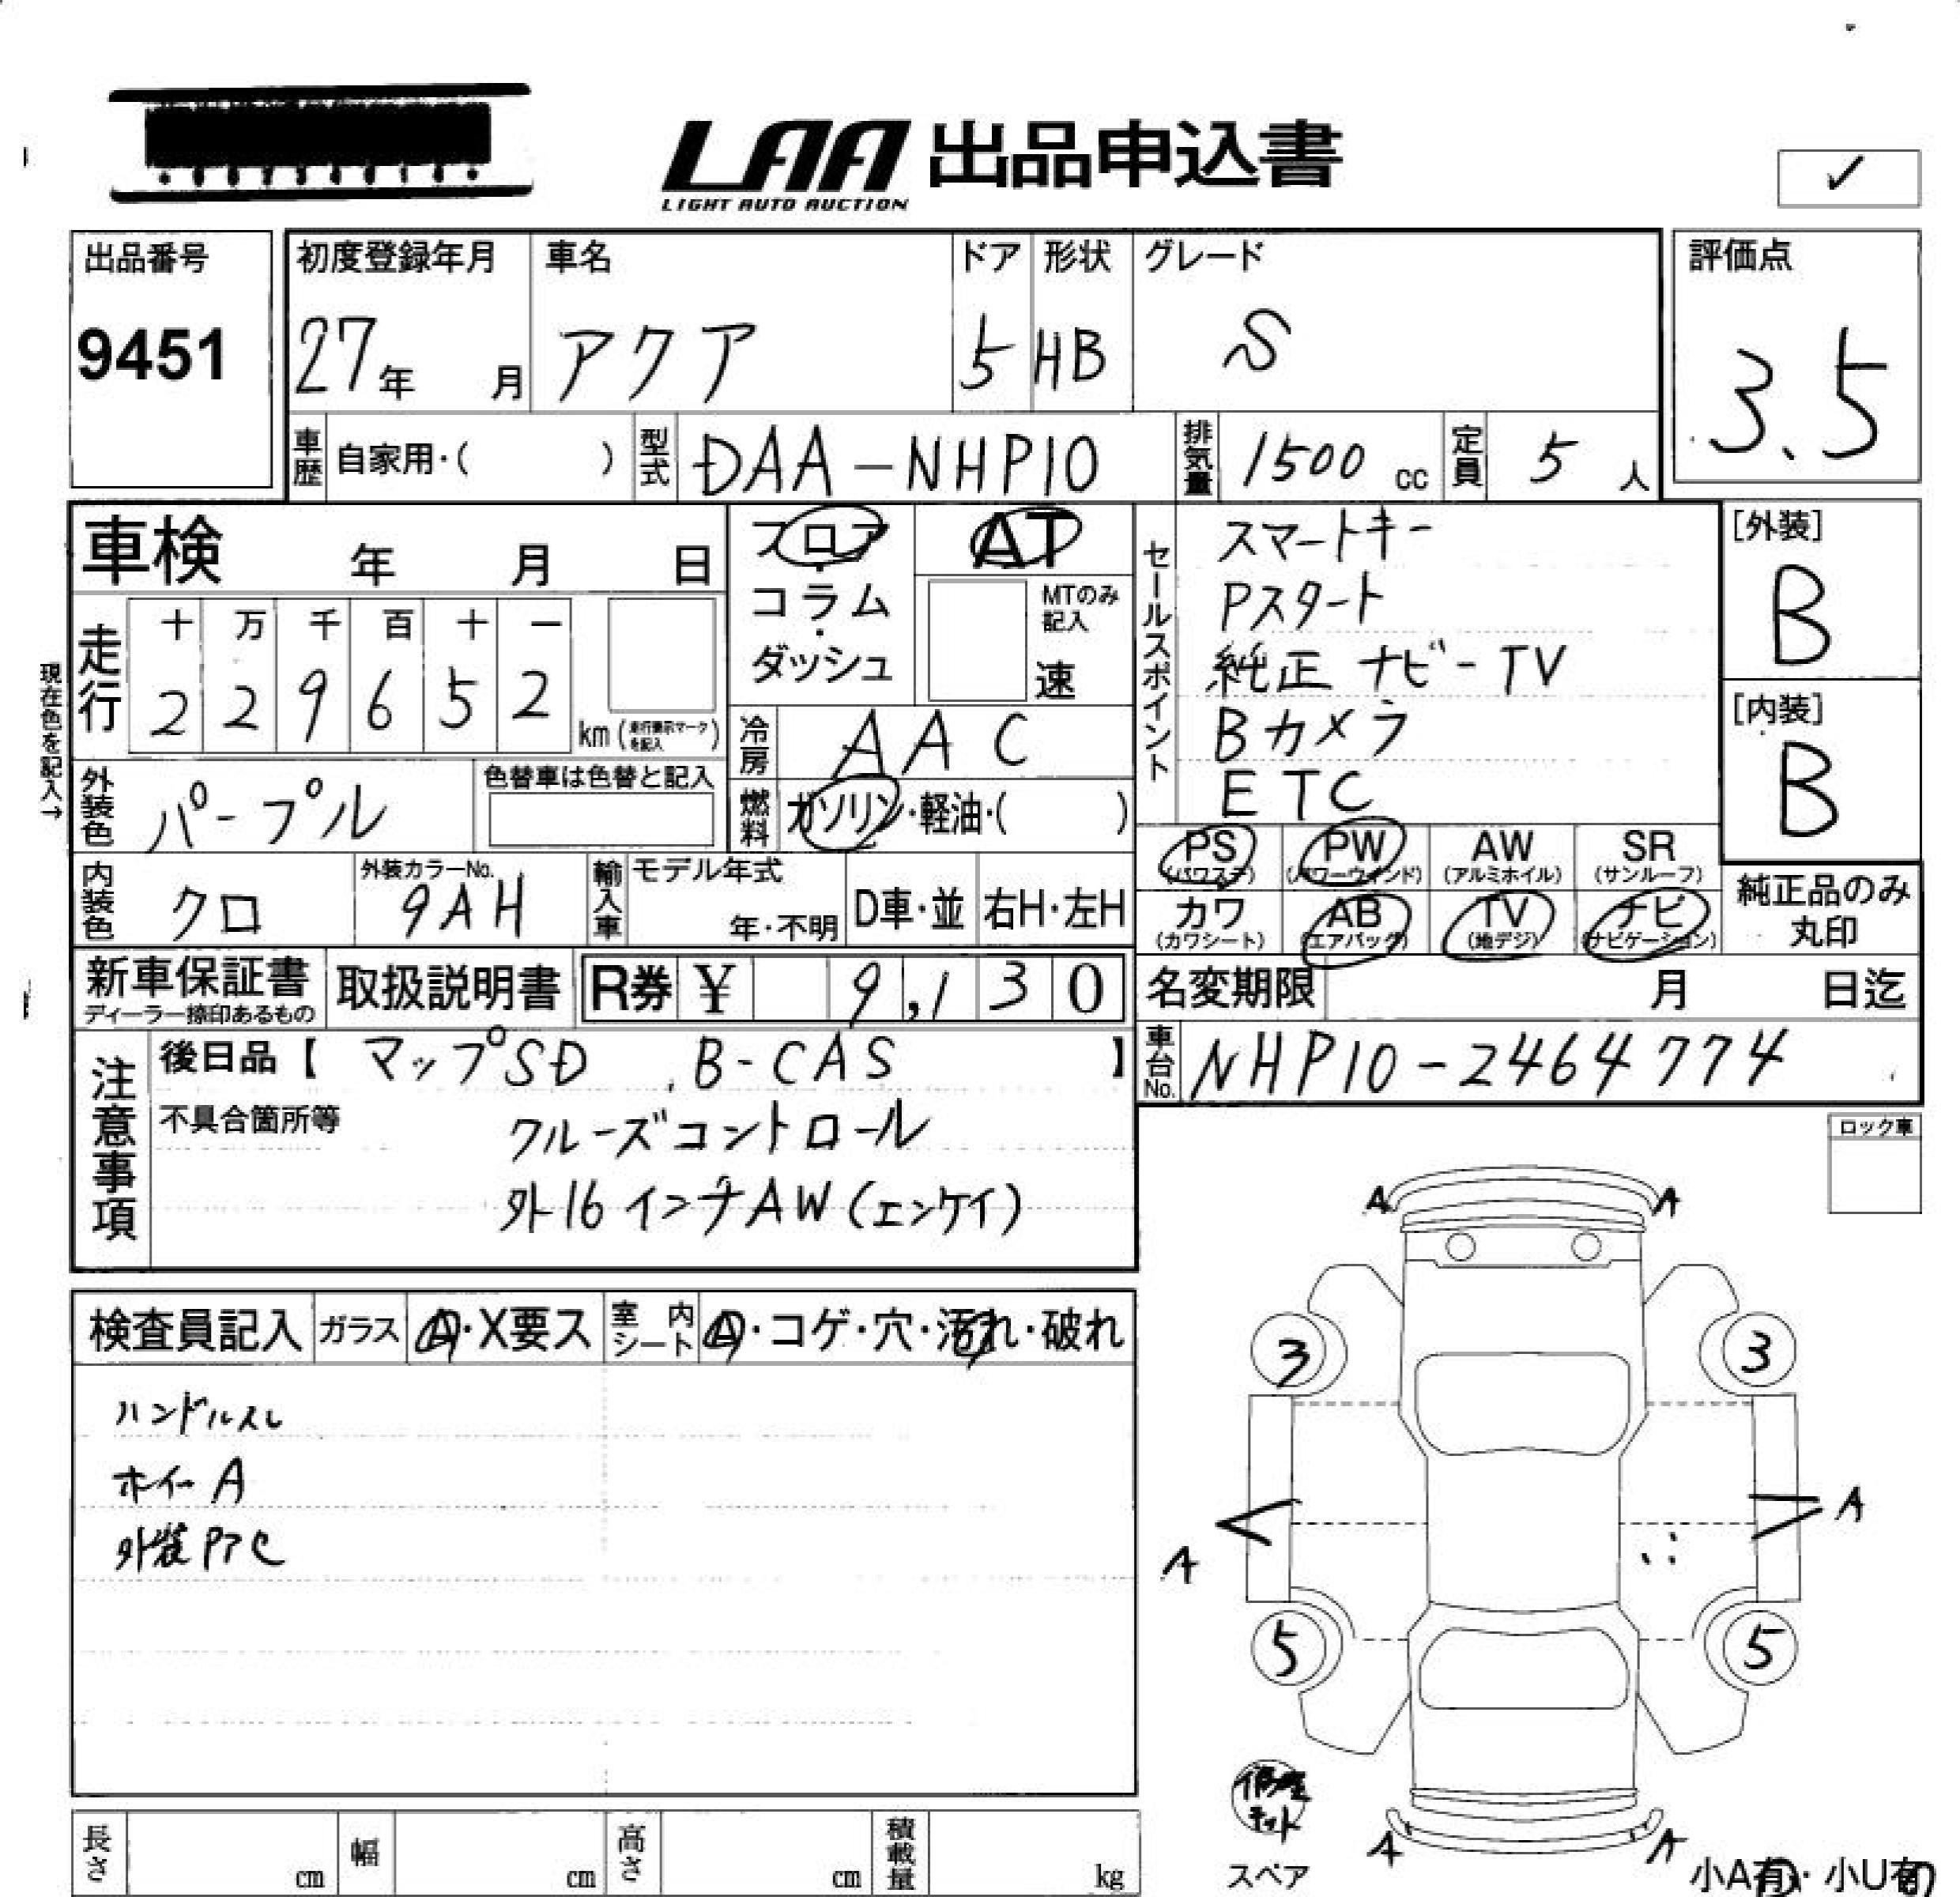 LAA 出品申込書
LIGHT AUTO AUCTION
✓
出品番号
9451
初度登録年月
27年 月
車名
アクア
ドア
5
形状
HB
グレード
S
評価点
3.5
車歴 自家用・( )
型式 DAA-NHP10
排気量 1500 cc
定員 5 人
車検 年 月 日
走行
十 万 千 百 十 一
2 2 9 6 5 2
km (走行表示マークを記入)
現在色を記入→
フロア・コラム・ダッシュ
AT
MTのみ記入
速
冷房 AAC
燃料 ガソリン・軽油・( )
セールスポイント
スマートキー
Pスタート
純正 ナビ-TV
Bカメラ
ETC
[外装]
B
[内装]
B
外装色 パープル
色替車は色替と記入
内装色 クロ
外装カラーNo.
9AH
輸入車
モデル年式
年・不明
D車・並
右H・左H
PS (パワステ)
PW (パワーウィンド)
AW (アルミホイル)
SR (サンルーフ)
カワ (カワシート)
AB (エアバッグ)
TV (地デジ)
ナビ (ナビゲーション)
純正品のみ丸印
新車保証書
ディーラー捺印あるもの
取扱説明書
R券 ¥ 9,130
名変期限 月 日迄
車台No. NHP10-2464774
注意事項
後日品【 マップSD . B-CAS 】
不具合箇所等
クルーズコントロール
外16インチAW(エンケイ)
ロック車
検査員記入
ガラス A・X要ス
室内シート A・コゲ・穴・汚れ・破れ
ハンドルスレ
ホイーA
外装
A A
3 3
A A
5 5
A A
修理キット
スペア
小A有・小U有
長さ cm
幅 cm
高さ cm
積載量 kg